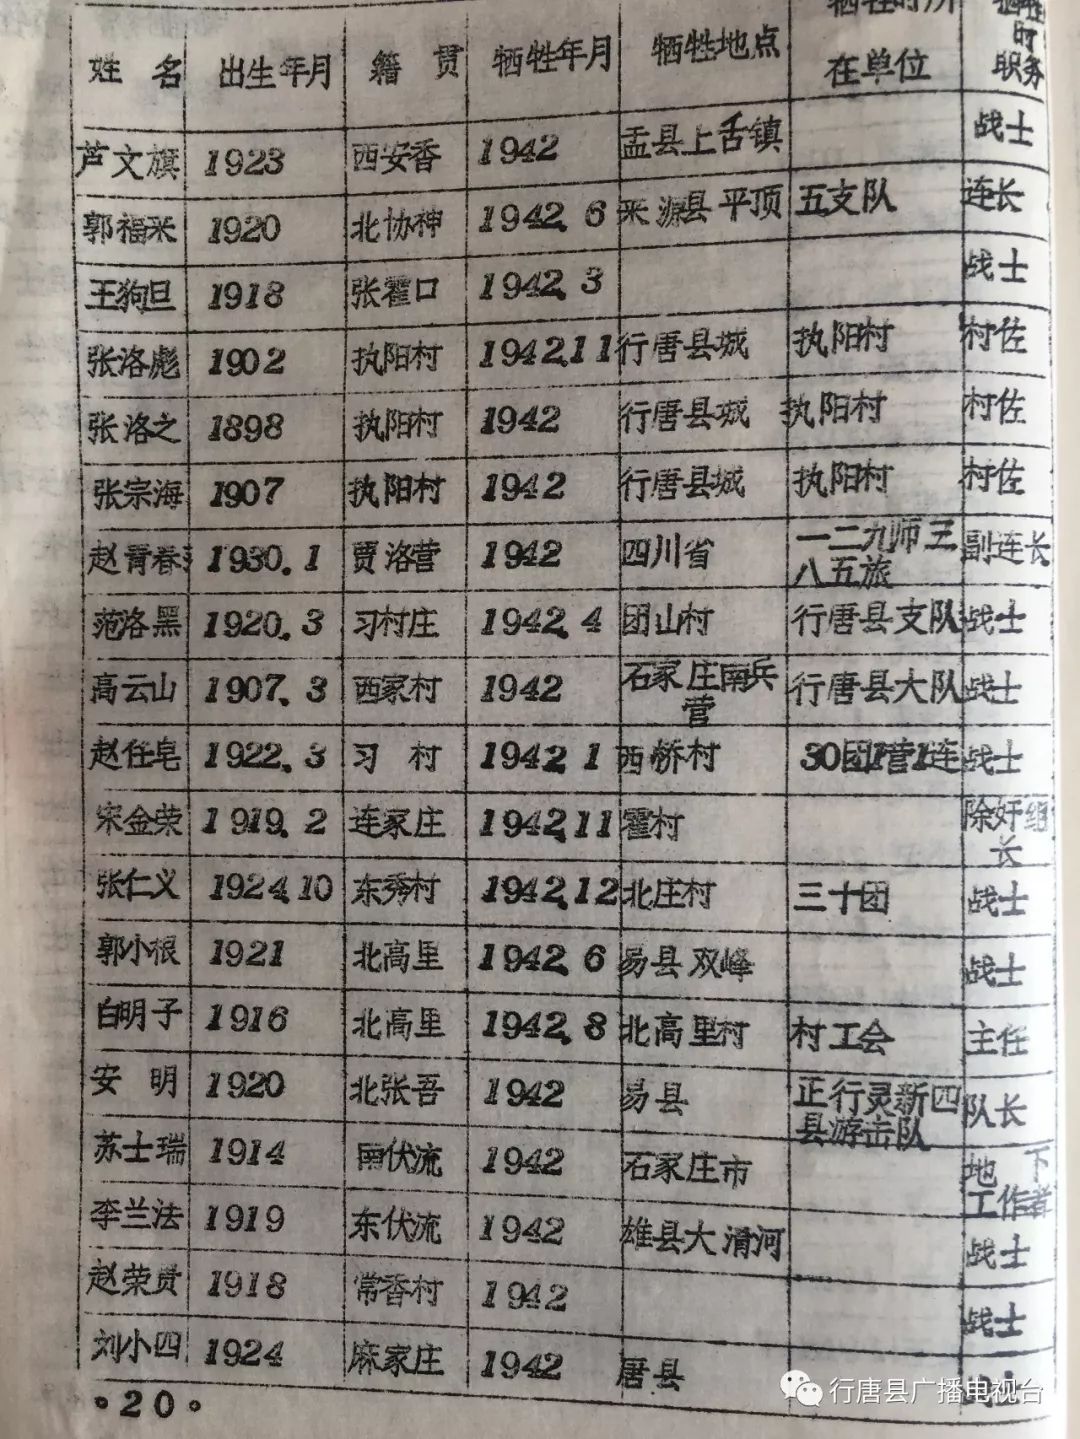 姓 名 出生年月 籍 贯 牺牲年月 牺牲地点 牺牲时所在单位 牺牲时职务
芦文旗 1923 西安香 1942 盂县上舌镇 战士
郭福米 1920 北协神 1942.6 米源县平顶 五支队 连长
王狗旦 1918 张霍口 1942.3 战士
张洛彪 1902 执阳村 1942.11 行唐县城 执阳村 村佐
张洛之 1898 执阳村 1942 行唐县城 执阳村 村佐
张宗海 1907 执阳村 1942 行唐县城 执阳村 村佐
赵青春 1930.1 贾洛营 1942 四川省 一二九师三八五旅 副连长
范洛黑 1920.3 习村庄 1942.4 团山村 行唐县支队 战士
高云山 1907.3 西家村 1942 石家庄南兵营 行唐县大队 战士
赵任皂 1922.3 习 村 1942.1 西桥村 30团1营1连 战士
宋金荣 1919.2 连家庄 1942.11 霍村 除奸组长
张仁义 1924.10 东秀村 1942.12 北庄村 三十团 战士
郭小根 1921 北高里 1942.6 易县双峰 战士
白明子 1916 北高里 1942.8 北高里村 村工会 主任
安 明 1920 北张吾 1942 易县 正行灵新四县游击队 队长
苏士瑞 1914 南伏流 1942 石家庄市 地下工作者
李兰法 1919 东伏流 1942 雄县大清河 战士
赵荣贵 1918 常香村 1942 战士
刘小四 1924 麻家庄 1942 唐县
·20·
行唐县广播电视台